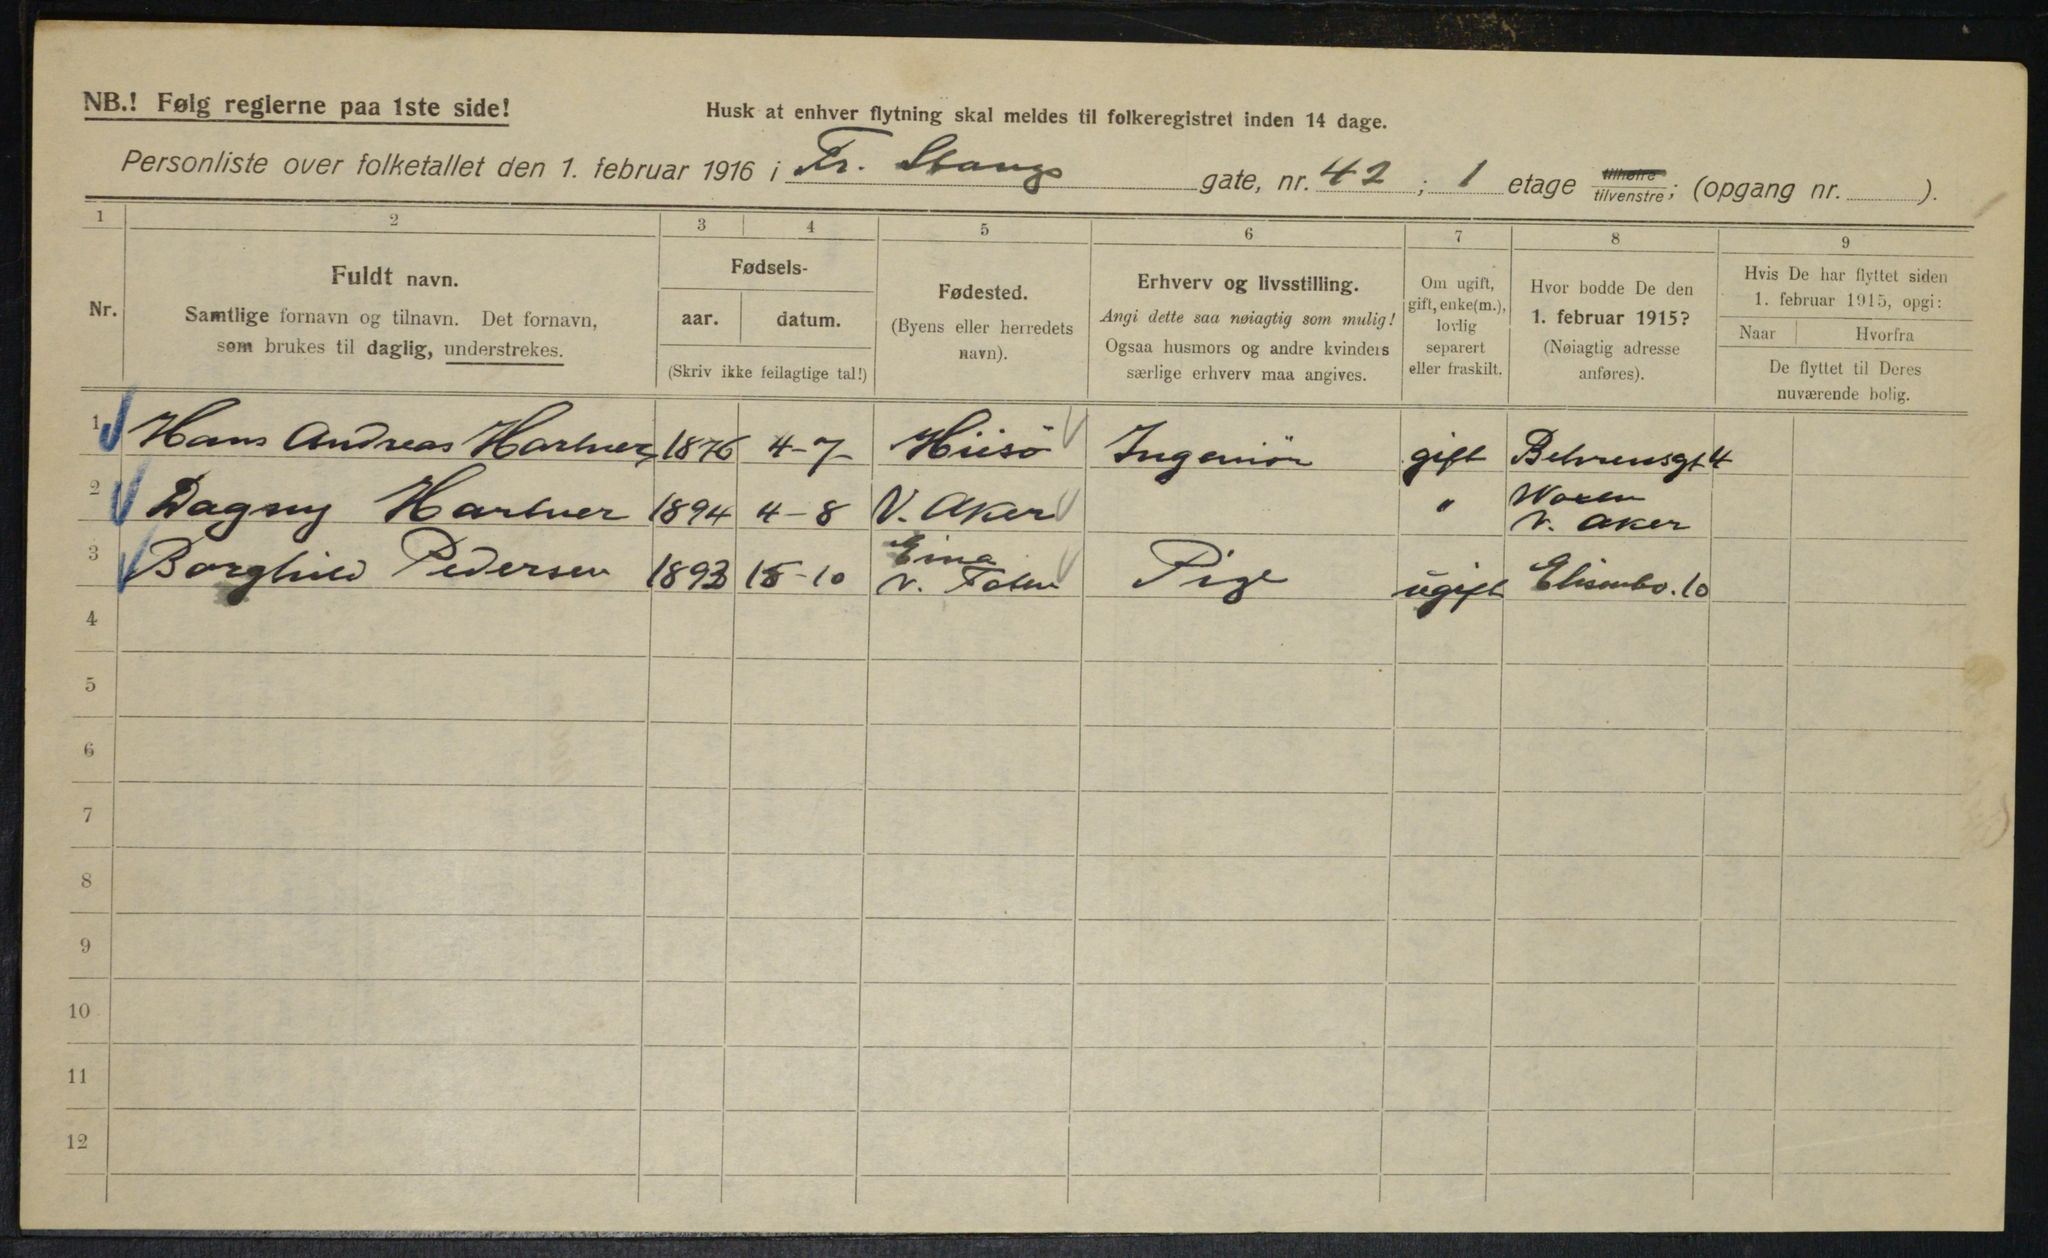 NB.! Følg reglerne paa 1ste side!
Husk at enhver flytning skal meldes til folkeregistret inden 14 dage.
Personliste over folketallet den 1. februar 1916 i Fr. Stangs gate, nr. 42 ; 1 etage tilhøire tilvenstre; (opgang nr. ).
1 2 3 4 5 6 7 8 9
Nr.
Fuldt navn.
Samtlige fornavn og tilnavn. Det fornavn,
som brukes til daglig, understrekes.
Fødsels-
aar. datum.
(Skriv ikke feilagtige tal!)
Fødested.
(Byens eller herredets
navn).
Erhverv og livsstilling.
Angi dette saa nøiagtig som mulig!
Ogsaa husmors og andre kvinders
særlige erhverv maa angives.
Om ugift,
gift, enke(m.),
lovlig
separert
eller fraskilt.
Hvor bodde De den
1. februar 1915?
(Nøiagtig adresse
anføres).
Hvis De har flyttet siden
1. februar 1915, opgi:
Naar Hvorfra
De flyttet til Deres
nuværende bolig.
1 Hans Andreas 1876 4-7- Hiisö Ingeniör gift Behrensgt 4
2 Dagny 1894 4-8 V. Aker " V. Aker
3 Borghild Pedersen 1893 15-10 Eina V. Toten Pige ugift Elisenbo. 10
4
5
6
7
8
9
10
11
12